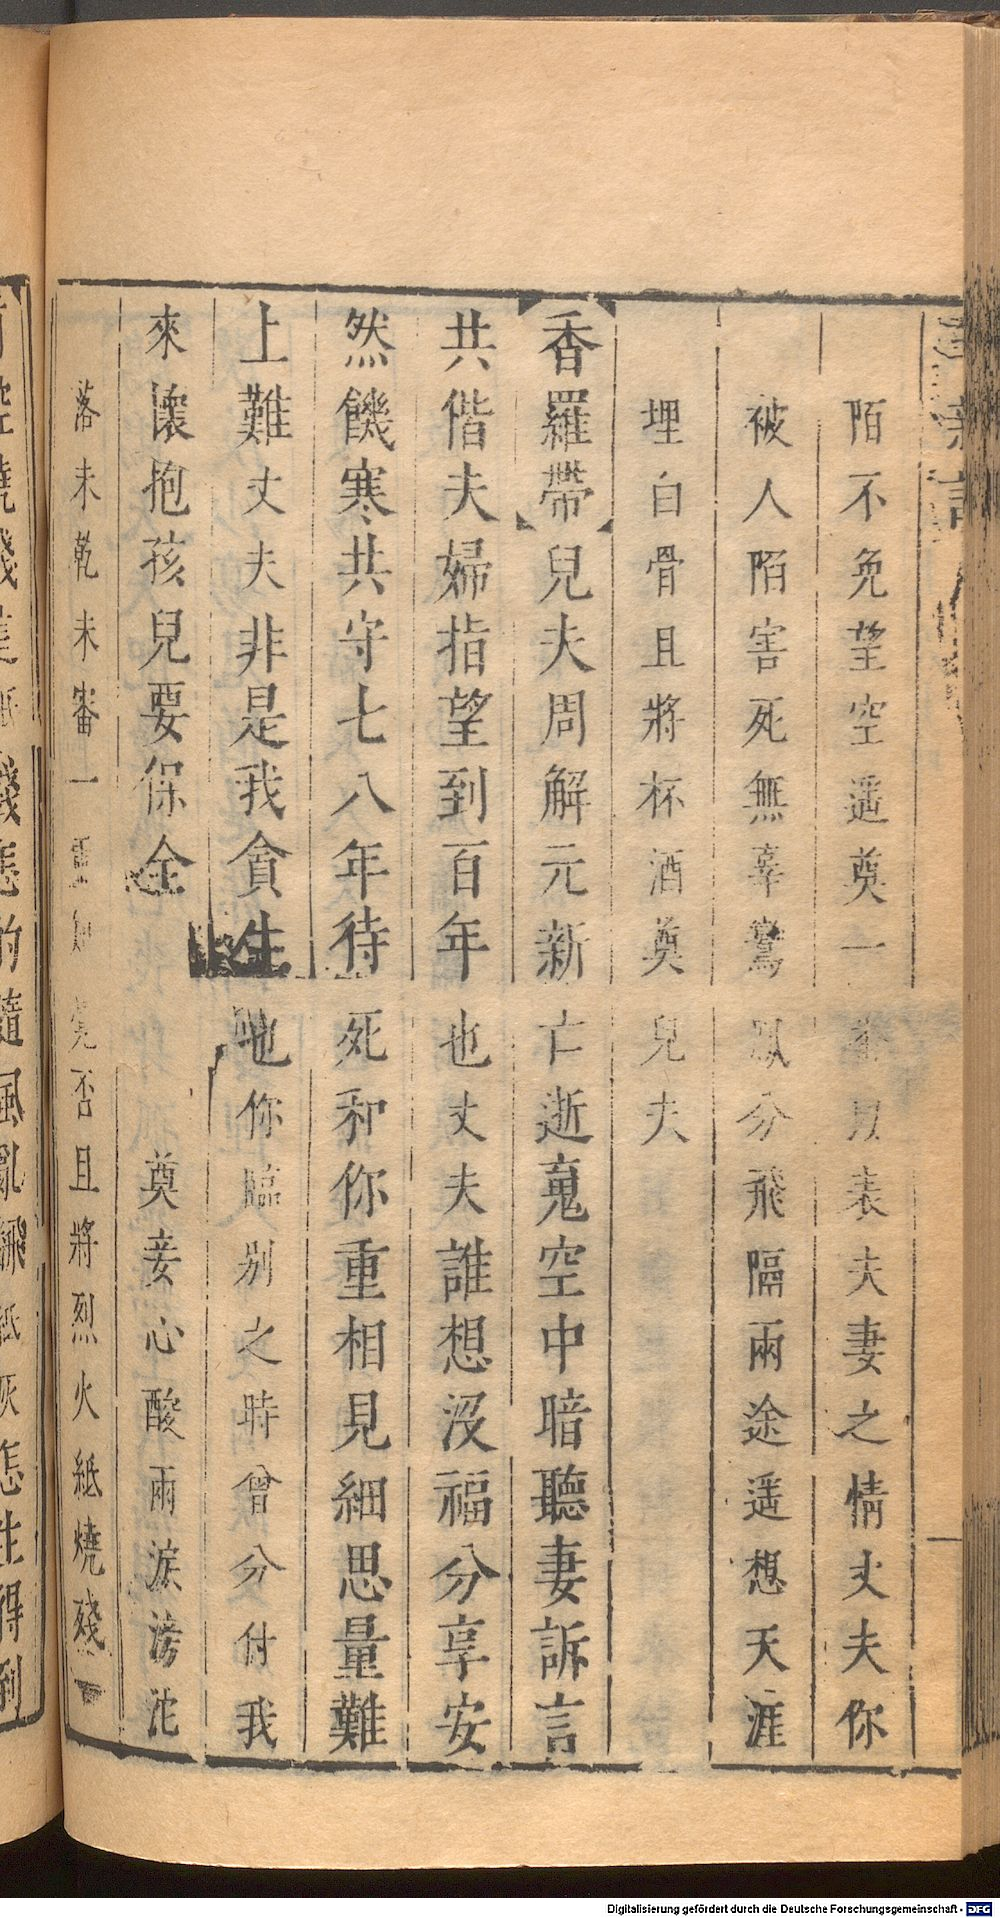 陌不免望空遥奠一 以表夫妻之情丈夫你
被人陷害死無辜鸞鳳分飛隔兩途遥想天涯
埋白骨且將杯酒奠兒夫
香羅帶兒夫周解元新亡逝䰟空中暗聽妻訴言
共偕夫婦指望到百年也丈夫誰想沒福分享安
然饑寒共守七八年待死和你重相見細思量難
上難丈夫非是我貪生 你臨别之時曾分付我
來懷抱孩兒要保全 奠妾心酸兩淚滂沱
落未乾未審一 覺否且將烈火紙燒殘
Digitalisierung gefördert durch die Deutsche Forschungsgemeinschaft - DFG